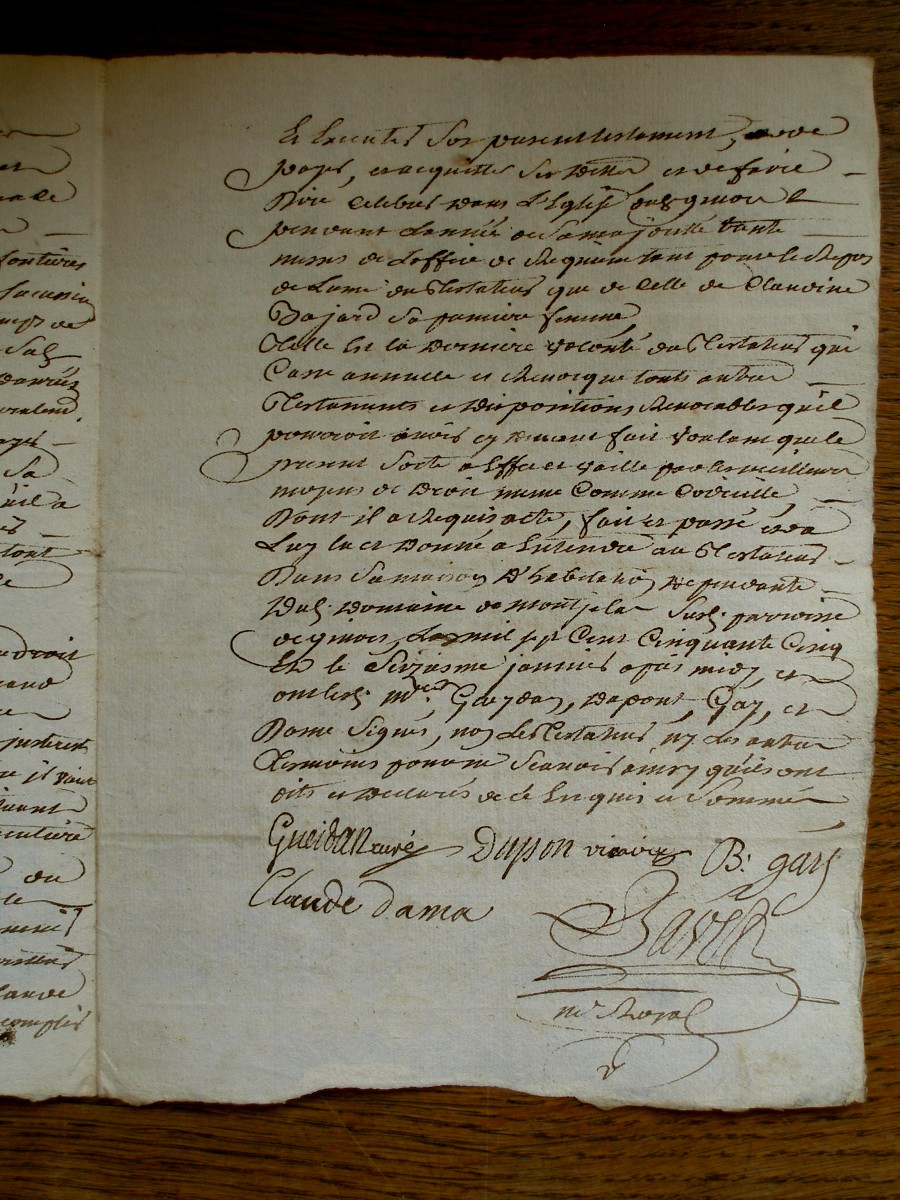 et executer son present testament, de
payer, et acquitter ses dettes et de faire
dire celebrer dans L'Eglise de grinos
pendant L'année de sa mort trante
messes de L'office de Requiem tant pour le Repos
de L'ame du Testateur que de Celle de Claudine
Bajard sa premiere femme
Telle Est la derniere volonté du Testateur qui
Casse annulle et Revocque touts autres
Testaments et dispositions Revocables qu'il
pourroit avoir cy devant fait voulant que le
present sorte a Effet et vaille par les meilleurs
moyens de Droit meme Comme Codicille
Dont il a Requis acte, fait et passé et a
Luy lu et Donné a Entendre au Testateur
Dans sa maison D'habitation dependante
dud. Domaine de susd. paroisse
de L'an mil sept Cent Cinquante Cinq
Et le Seizieme janvier apres midy, et
ont lesd. Gueydan, Dupont, Gay, et
Dama Signés, non Le Testateur ny Les autres
Temoins pour ne Scavoir ainsy qu'ils ont
dits et declarés de ce Enquis et Sommés
Gueidan curé Dupon vicaire B. gay
Claude dama
nre Royal